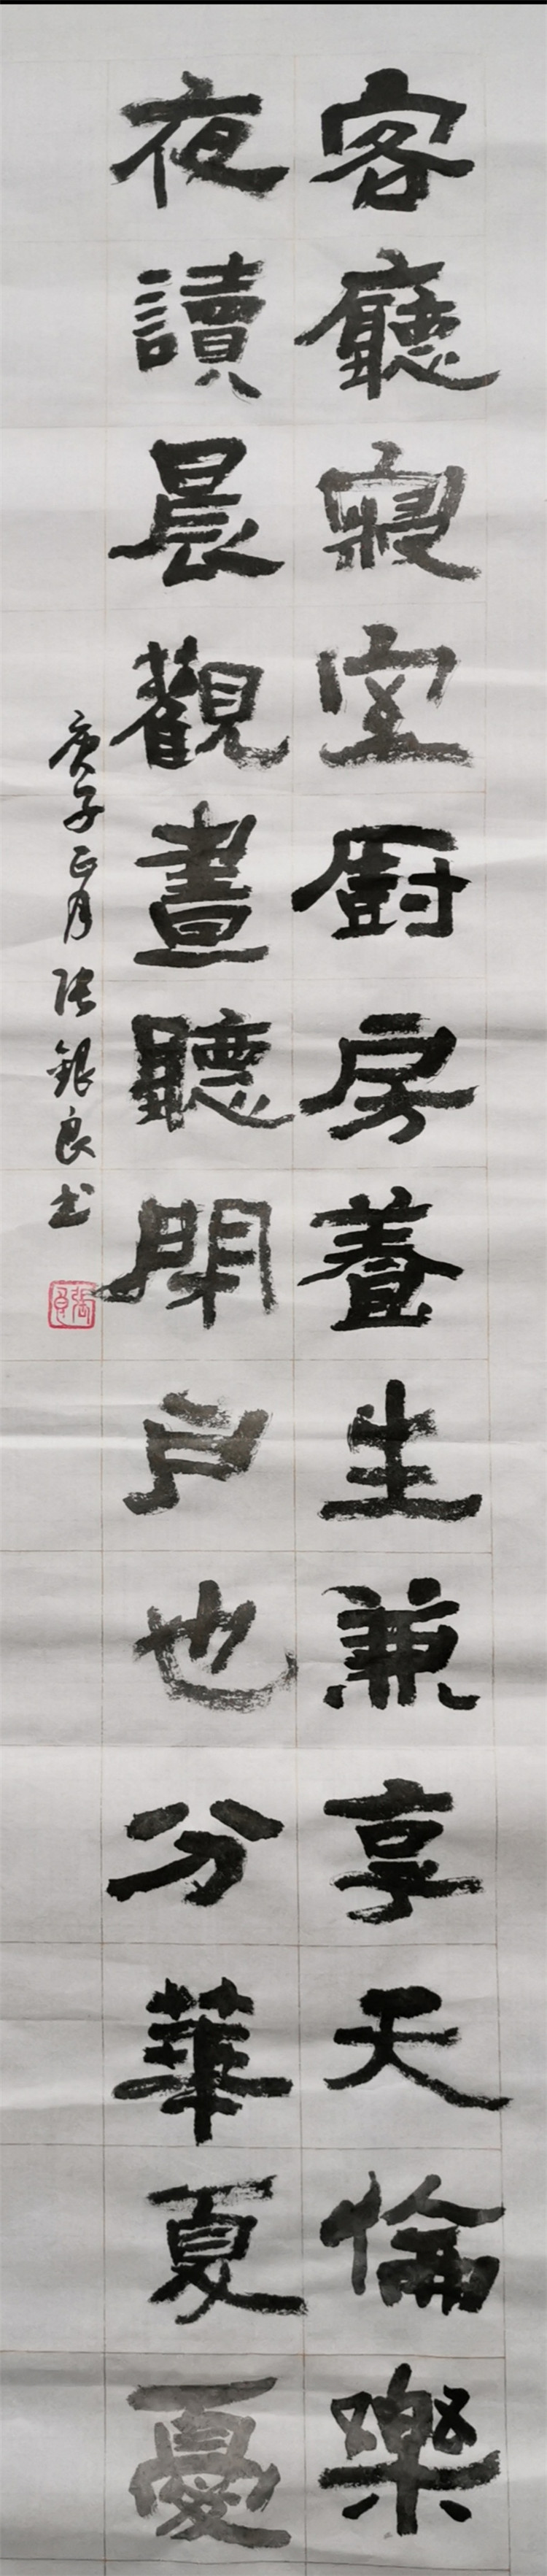 客廳寢室廚房養生兼享天倫樂
夜讀晨觀晝聽閉户也分華夏憂
庚子正月张銀良书
張良